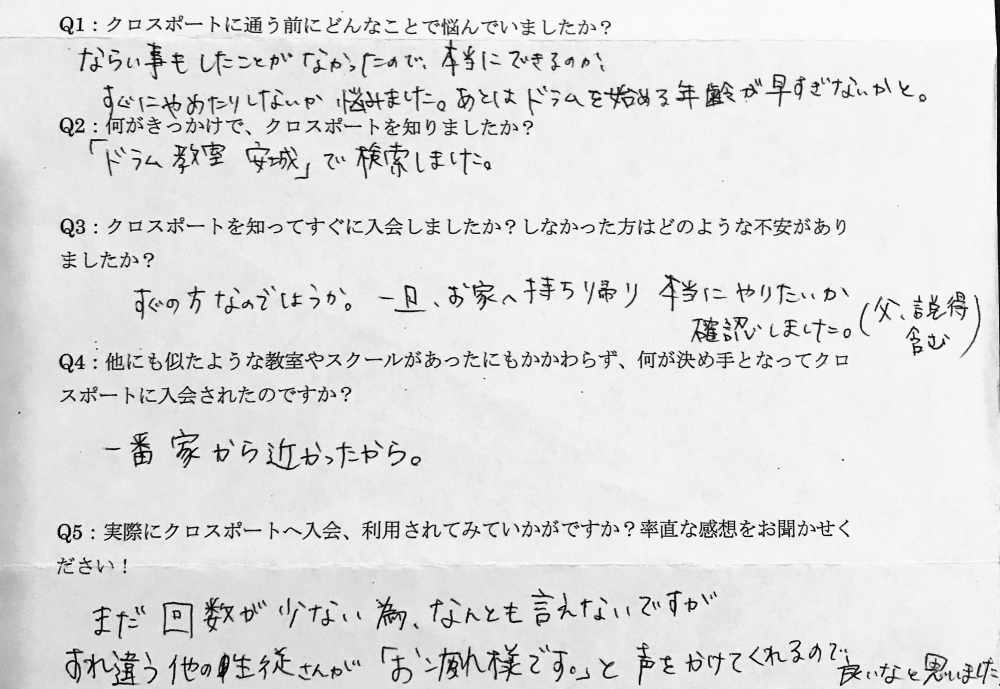 Q1：クロスポートに通う前にどんなことで悩んでいましたか？
ならい事もしたことがなかったので、本当にできるのか、
すぐにやめたりしないか悩みました。あとはドラムを始める年齢が早すぎないかと。
Q2：何がきっかけで、クロスポートを知りましたか？
「ドラム教室 安城」で検索しました。
Q3：クロスポートを知ってすぐに入会しましたか？しなかった方はどのような不安があり
ましたか？
すぐの方なのでしょうか。一旦、お家へ持ち帰り 本当にやりたいか
確認しました。(父、説得
含む)
Q4：他にも似たような教室やスクールがあったにもかかわらず、何が決め手となってクロ
スポートに入会されたのですか？
一番家から近かったから。
Q5：実際にクロスポートへ入会、利用されてみていかがですか？率直な感想をお聞かせく
ださい！
まだ回数が少ない為、なんとも言えないですが
すれ違う他の生徒さんが「お疲れ様です。」と声をかけてくれるので、良いなと思いました。